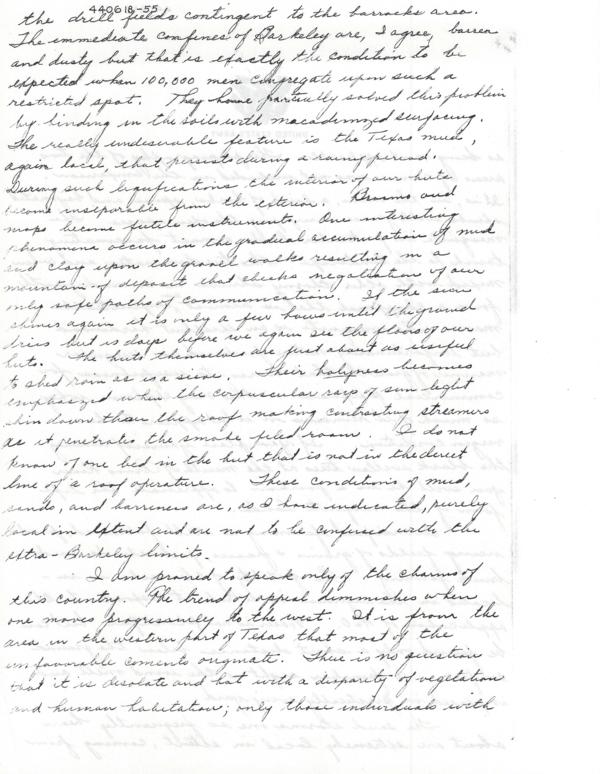 440618-55
the drill fields contingent to the barracks area.
The immediate confines of Barkeley are, I agree, barren
and dusty but that is exactly the condition to be
expected when 100,000 men congregate upon such a
restricted spot. They have partially solved this problem
by binding in the soils with macadamized surfacing.
The really undesirable feature is the Texas mud,
again local, that persists during a rainy period.
During such liquifications the interior of our huts
become inseparable from the exterior. Brooms and
mops become futile instruments. One interesting
phenomena occurs in the gradual accumulation of mud
and clay upon the gravel walks resulting in a
mountain of deposit that checks negotiation of our
only safe paths of communication. If the sun
shines again it is only a few hours until the ground
dries but is days before we again see the floors of our
huts. The huts themselves are just about as useful
to shed rain as is a sieve. Their holyness becomes
emphasized when the corpuscular rays of sun light
shin down thru the roof making contrasting streamers
as it penetrates the smoke filed room. I do not
know of one bed in the hut that is not in the direct
line of a roof aperature. These conditions of mud,
sands, and barreness are, as I have indicated, purely
local in extent and are not to be confused with the
extra-Barkeley limits.
I am proned to speak only of the charms of
this country. The trend of appeal diminishes when
one moves progressively to the west. It is from the
area in the western part of Texas that most of the
unfavorable coments originate. There is no question
that it is desolate and hot with a disparity of vegetation
and human habitation; only those individuals with